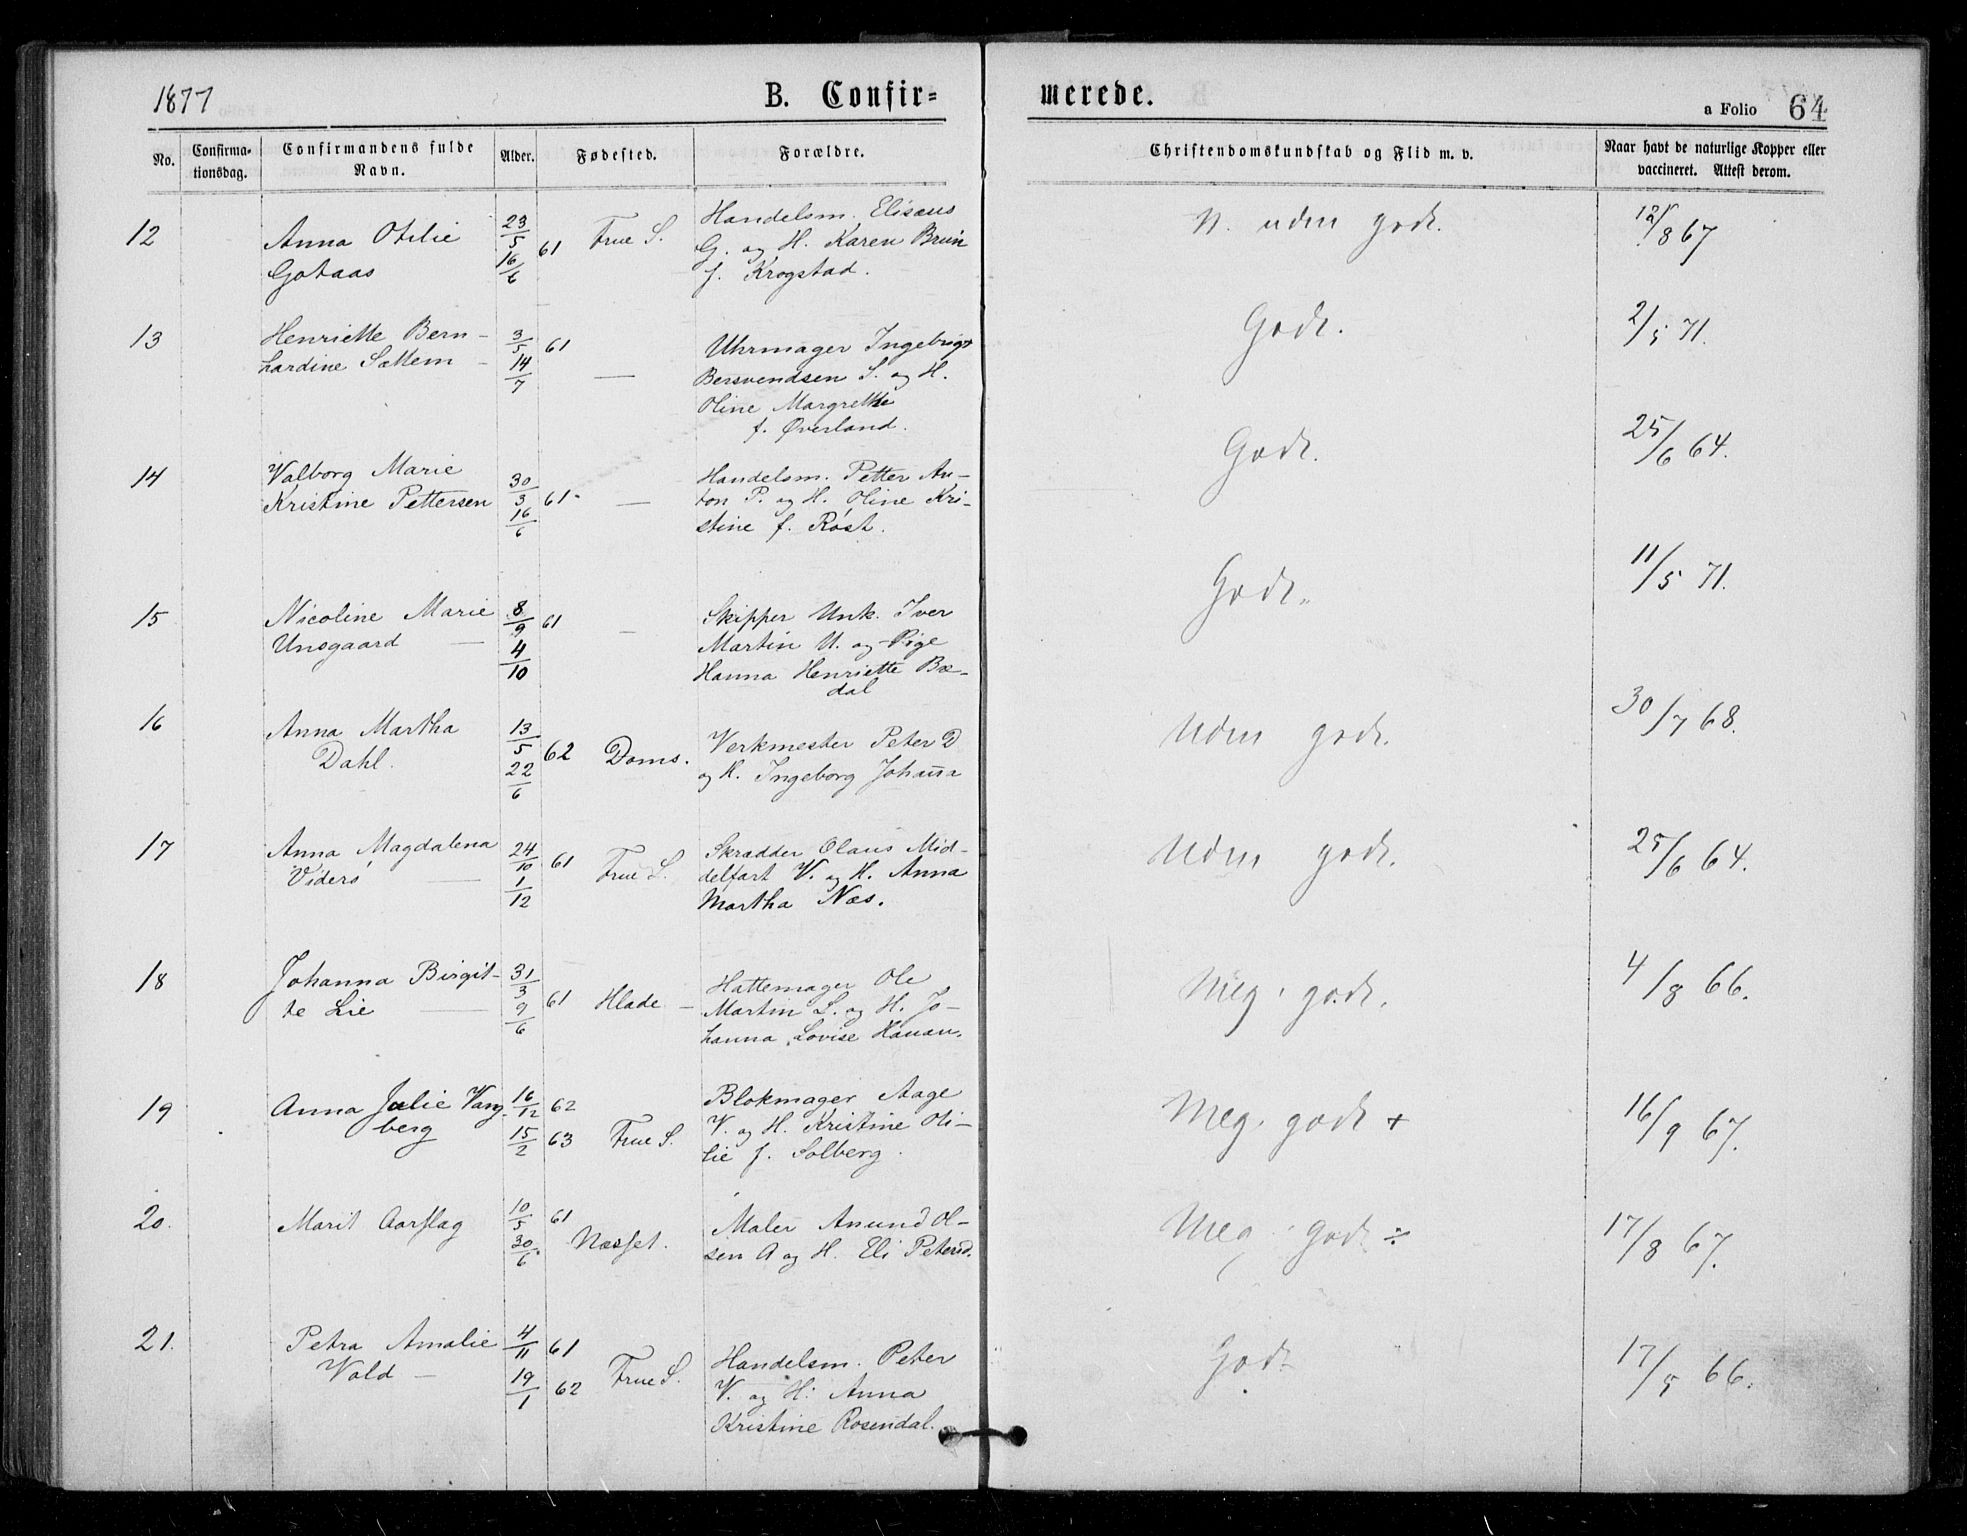 1877 B. Confir= merede. a Folio 64
No. Confirma-tionsdag. Confirmandens fulde Navn. Alder. Fødested. Forældre. Christendomskundskab og Flid m. v. Naar havt de naturlige Kopper eller vaccineret. Attest derom.
12 Anna Otilie 23/5 61 Frue S. Handelsm. Elisæus N. uden godt. 12/8 67
Gotaas 16/6 G. og H. Karen Bruun
f. Krogstad.
13 Henriette Bern- 3/5 61 — Uhrmager Ingebrigt Godt. 2/5 71.
hardine Sættem 14/7 Bersvendsen S. og H.
Oline Margrethe
f. Øverland.
14 Valborg Marie 30/3 61 — Handelsm. Petter An- Godt. 25/6 64.
Kristine Pettersen 16/6 ton P. og H. Oline Kri-
stine f. Røst.
15 Nicoline Marie 8/9 61 — Skipper Unk. Iver Godt. 11/5 71.
Unsgaard — 4/10 Martin U. og Pige
Hanna Henriette Bæ-
dal
16 Anna Martha 13/5 62 Doms. Verkmester Peter D Uden godt. 30/7 68.
Dahl. 22/6 og H. Ingeborg Johanna
17 Anna Magdalena 24/10 61 Frue S. Skrædder Olaus Mid- Uden godt. 25/6 64.
Viderö — 1/12 delfart V. og H. Anna
Martha Næs.
18 Johanna Birgit- 31/3 61 Hlade — Hattemager Ole Meg. godt. 4/8 66.
te Lie — 9/6 Martin L. og H. Jo-
hanna Lovise Hanan.
19 Anna Julie Vang- 16/12 62 Blokmager Aage Meg. godt + 16/9 67.
berg 15/2 63 Frue S. V. og H. Kristine Oti-
lie f. Solberg.
20. Marit Aarflag 10/5 61 Næsset. Maler Anund Ol- Meg. godt ÷ 17/8 67.
30/6 sen A og H. Eli Petersd.
21. Petra Amalie 4/11 61 Frue S. Handelsm. Peter Godt 17/5 66.
Vold — 19/1 62 V. og H. Anna
Kristine Rosendal.